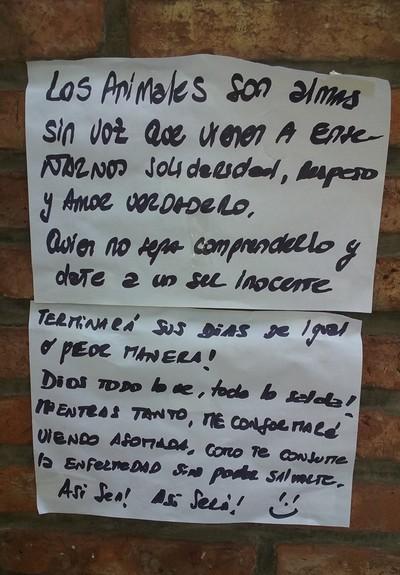 Los Animales son almas
sin voz que vienen A ense-
ÑARNOS solidaridad, respeto
y Amor verdadero.
Quien no sepa comprenderlo y
dañe a un ser inocente
TERMINARÁ SUS DÍAS de igual
o PEOR MANERA!
Dios todo lo ve, todo lo salda!
MIENTRAS TANTO, ME CONFORMARÉ
viendo asomada, como te consume
la ENFERMEDAD sin poder salvarte.
Asi Sea! Asi Será!